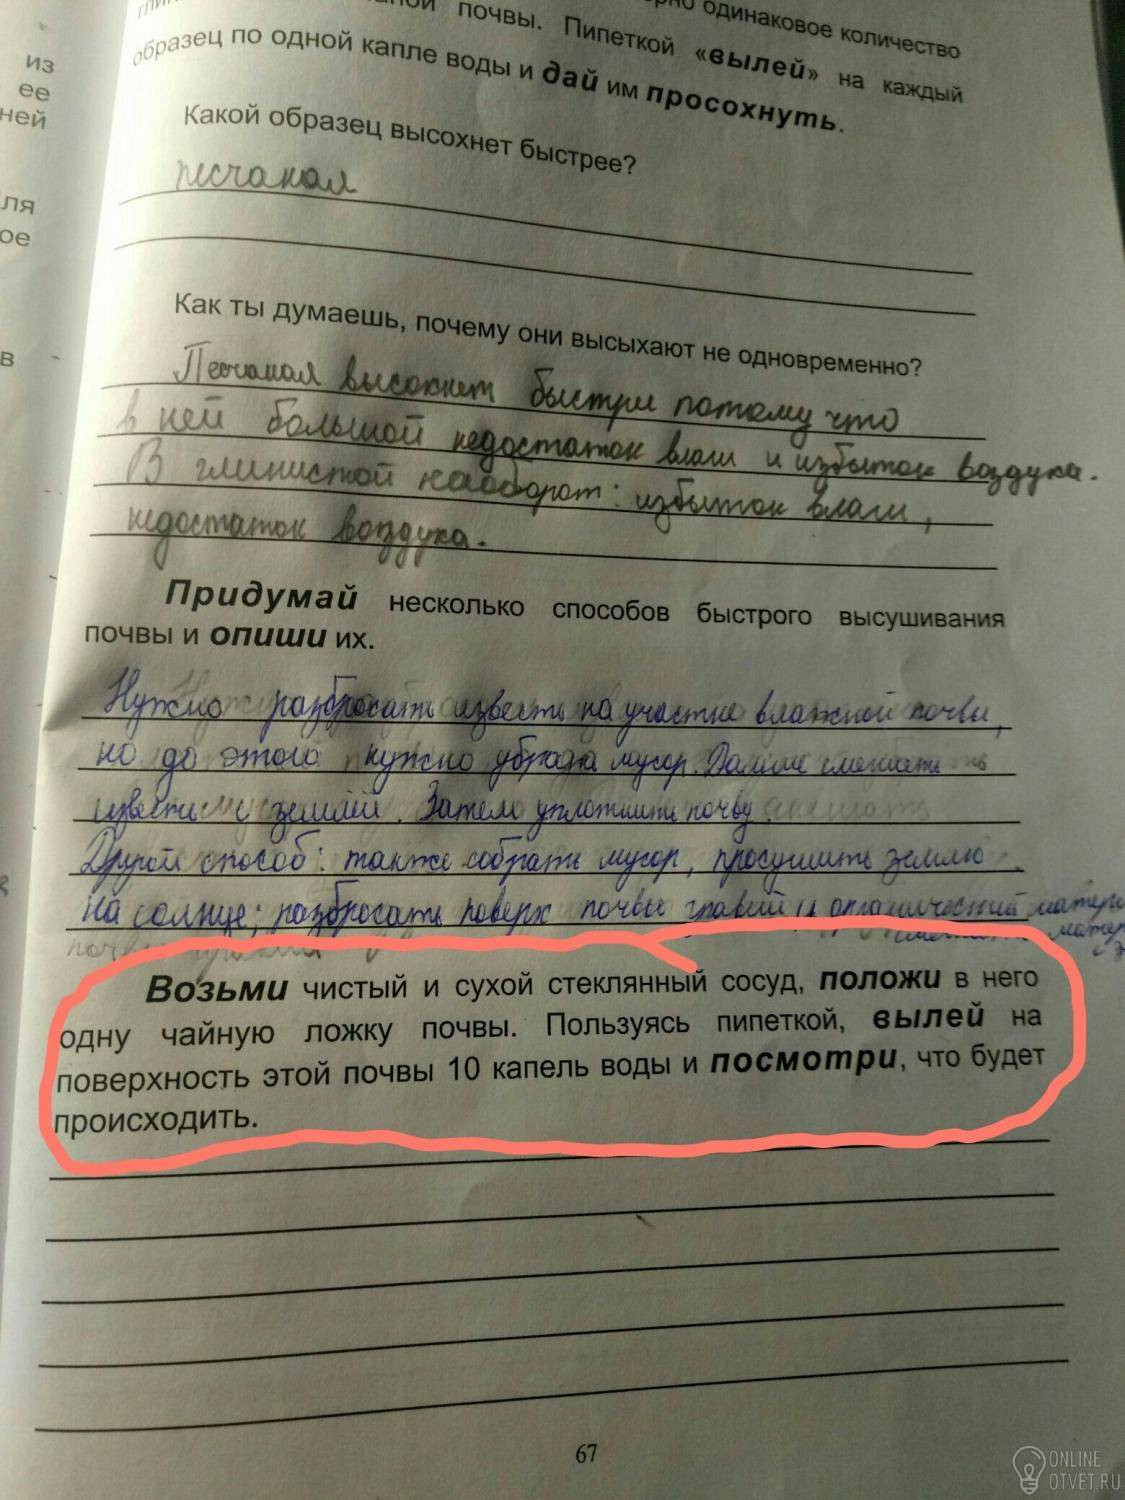 из
ее
ней
ля
ое
в
почвы. Пипеткой «вылей» на каждый
одинаковое количество
образец по одной капле воды и дай им просохнуть.
Какой образец высохнет быстрее?
песчаная
Как ты думаешь, почему они высыхают не одновременно?
Песчаная высохнет быстри потому что
в ней большой недостаток влаги и избыток воздуха.
В глинистой наоборот: избыток влаги,
недостаток воздуха.
Придумай несколько способов быстрого высушивания
почвы и опиши их.
Нужно разбросать известь на участке влажной почвы,
но до этого нужно убрать мусор. Дальше смешать
известь с землёй. Затем уплотнить почву.
Другой способ: также собрать мусор, просушить землю
на солнце; разбросать поверх почвы гравий и органический матери
Возьми чистый и сухой стеклянный сосуд, положи в него
одну чайную ложку почвы. Пользуясь пипеткой, вылей на
поверхность этой почвы 10 капель воды и посмотри, что будет
происходить.
67
ONLINE
OTVET.RU